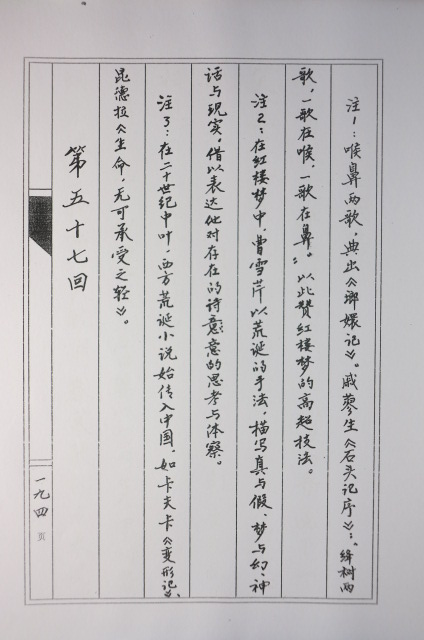 注1：喉鼻两歌，典出《瑯嬛记》。戚蓼生《石头记序》：“绛树两
歌，一歌在喉，一歌在鼻”。以此赞红楼梦的高超技法。
注2：在红楼梦中，曹雪芹以荒诞的手法，描写真与假、梦与幻、神
话与现实，借以表达他对存在的诗意意的思考与体察。
注3：在二十世纪中叶，西方荒诞小说始传入中国，如卡夫卡《变形记》、
昆德拉《生命，无可承受之轻》。
第五十七回
一九四页